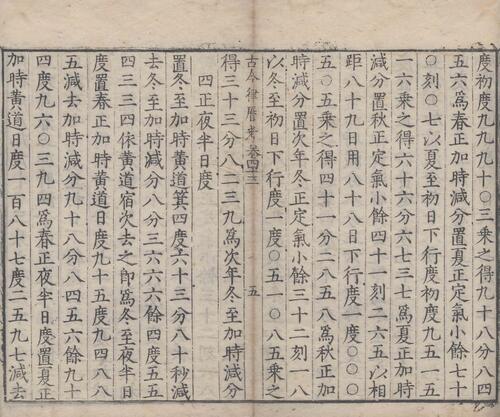 度初度九九九九十〇三乗之得九十八分八四
五六爲春正加時減分置夏正定氣小餘七十
〇刻〇七以夏至初日下行度初度九五一五
一六乗之得六十六分六七三七爲夏正加時
減分置秋正定氣小餘四十一刻二六五以相
距八十九日用八十八日下行度一度〇〇〇
五〇五乗之得四十一分二八五八爲秋正加
時減分置次年冬正定氣小餘三十二刻一八
以冬至初日下行度一度〇五一〇八五乗之
古今律曆考 卷四十三 五
得三十三分八二三九爲次年冬至加時減分
四正夜半日度
置冬至加時黃道箕四度六十三分八十秒減
去冬至加時減分八分三六六六餘四度五五
四三三四依黃道宿次去之即爲冬至夜半日
度置春正加時黃道日度九十五度九四八八
五減去加時減分九十八分八四五六餘九十
四度九六〇三九四爲春正夜半日度置夏正
加時黃道日度一百八十七度二五九七減去